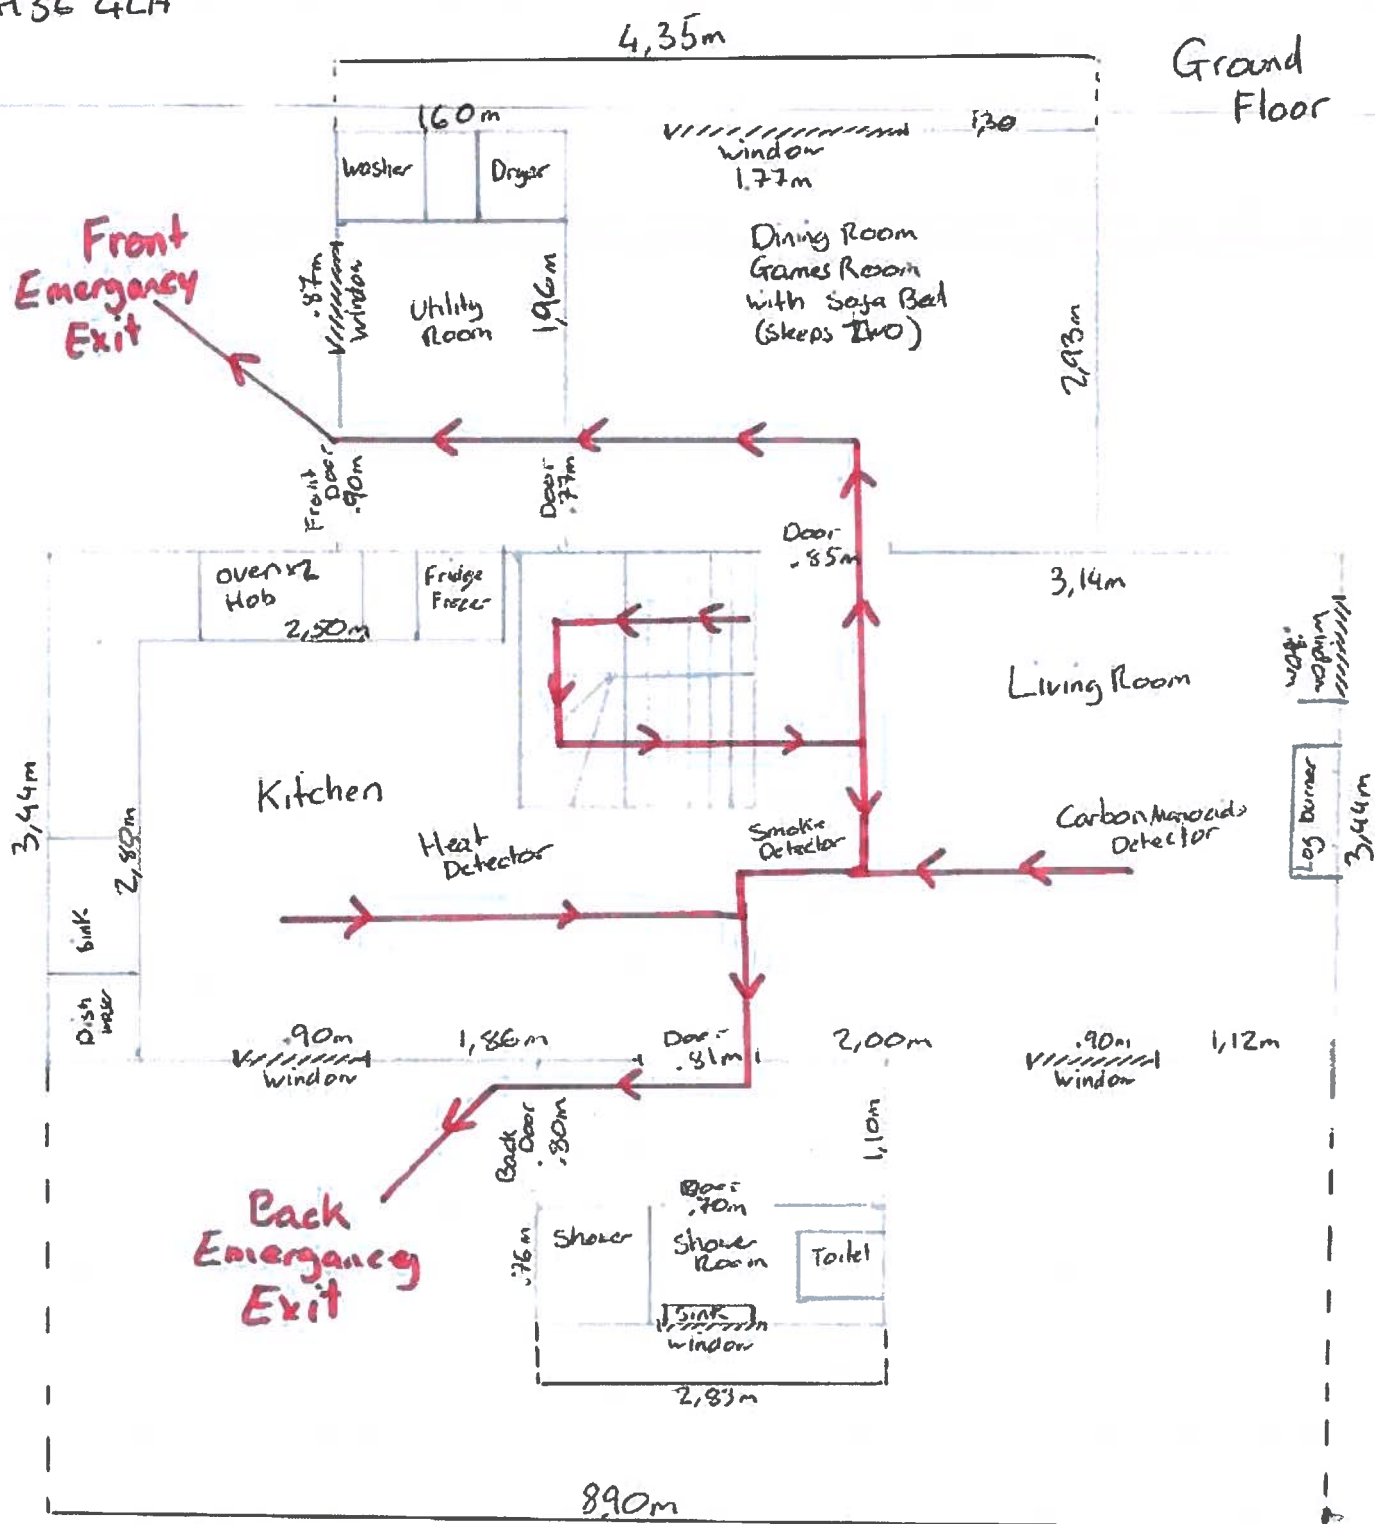 4,35m
Ground
Floor
1,60m
1,30
Washer
Dryer
window
1.77m
Front
Emergancy
Exit
.87m
Window
Utility
Room
1,96m
Dining Room
Games Room
with Sofa Bed
(Sleeps Two)
2,93m
Front
Door
.90m
Door
.77m
Door
.85m
Oven x2
Hob
2,50m
Fridge
Freezer
3,14m
Living Room
Window
3,44m
Kitchen
2,80m
Heat
Detector
Smoke
Detector
Carbon Monoxide
Detector
Log burner
3,44m
Sink
Dish
washer
.90m
window
1,86m
Door
.81m
2,00m
.90m
window
1,12m
Back
Door
.80m
1,10m
Back
Emergancy
Exit
Door
.70m
.76m
Shower
Shower
Room
Toilet
Sink
window
2,83m
8,90m